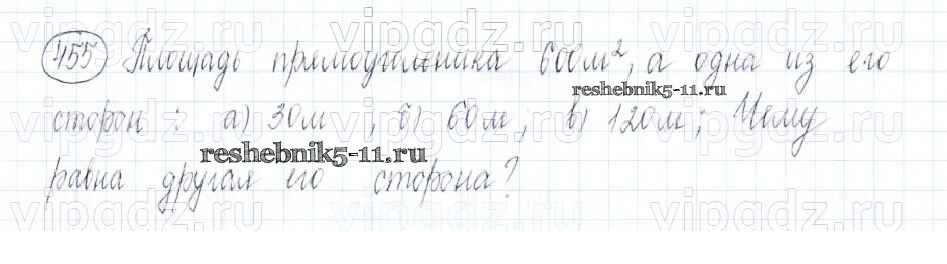 455 Площадь прямоугольника 600м², а одна из его
reshebnik5-11.ru
сторон : а) 30м , б) 60м; в) 120м; Чему
reshebnik5-11.ru
равна другая его сторона?
vipgdz.ru vipgdz.ru vipgdz.ru vipgdz.ru
vipgdz.ru vipgdz.ru vipgdz.ru vipgdz.ru
vipgdz.ru vipgdz.ru vipgdz.ru vipgdz.ru